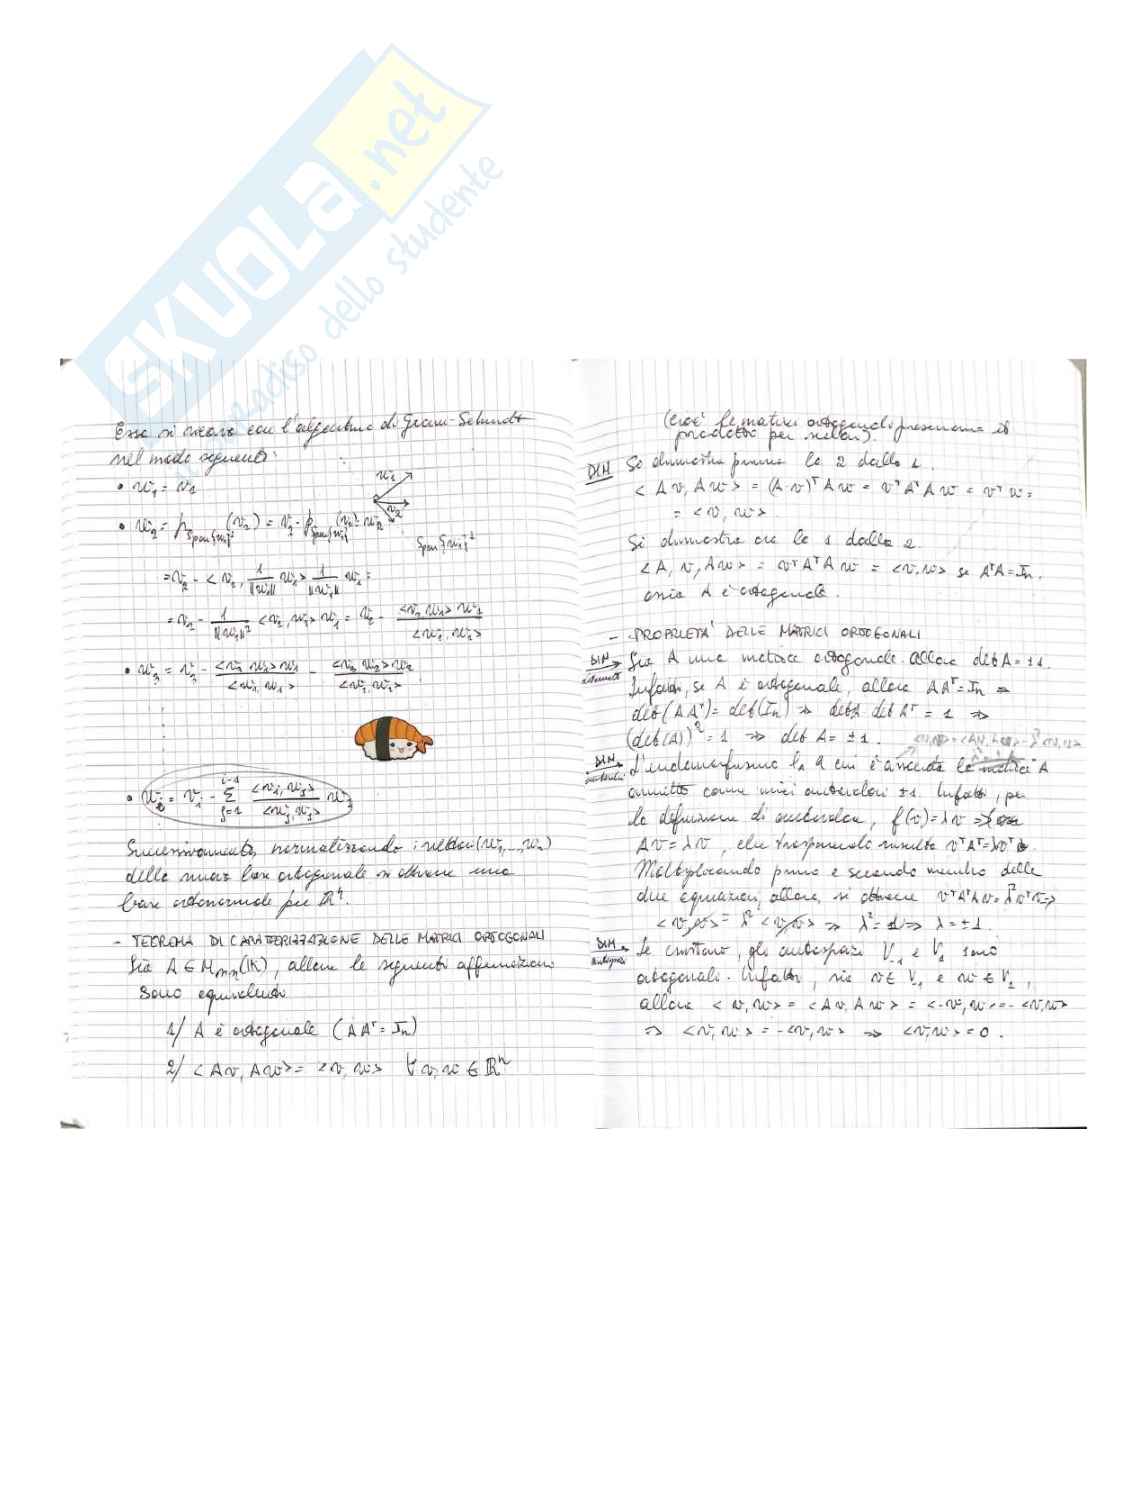 SKUOLA.net
paradiso dello studente
Essa si creava con l'algoritmo di Gram-Schmidt
nel modo seguente:
• w₁ = v₁
w₁
v₂
• w₂ = p_Span{w₁}⊥ (v₂) = v₂ - p_Span{w₁} (v₂) = w₂
Span{w₁}⊥
= v₂ - <v₂, 1/||w₁|| w₁> 1/||w₁|| w₁ =
= v₂ - 1/||w₁||² <v₂, w₁> w₁ = v₂ - <v₂, w₁> w₁ / <w₁, w₁>
• w₃ = v₃ - <v₃, w₁> w₁ / <w₁, w₁> - <v₃, w₂> w₂ / <w₂, w₂>
• wᵢ = vᵢ - Σ_{j=1}^{i-1} <vᵢ, wⱼ> / <wⱼ, wⱼ> wⱼ
Successivamente, normalizzando i vettori (w₁, ..., wₙ)
della nuova base ortogonale si ottiene una
base ortonormale per ℝⁿ.
- TEOREMA DI CARATTERIZZAZIONE DELLE MATRICI ORTOGONALI
Sia A ∈ Mₙ,ₙ(K), allora le seguenti affermazioni
sono equivalenti
1/ A è ortogonale (AAᵀ = Iₙ)
2/ <Av, Aw> = <v, w> ∀ v, w ∈ ℝⁿ
(cioè le matrici ortogonali preservano il
prodotto per scalari).
DIM Si dimostra prima la 2 dalla 1.
<Av, Aw> = (A·v)ᵀ Aw = vᵀAᵀAw = vᵀw =
= <v, w>.
Si dimostra ora la 1 dalla 2.
<A, v, Aw> = vᵀAᵀAw = <v, w> se AᵀA = Iₙ,
ossia A è ortogonale.
- PROPRIETA' DELLE MATRICI ORTOGONALI
DIM Sia A una matrice ortogonale. Allora det A = ±1.
Infatti, se A è ortogonale, allora AAᵀ = Iₙ ⇒
det(AAᵀ) = det(Iₙ) ⇒ det A det Aᵀ = 1 ⇒
(det(A))² = 1 ⇒ det A = ±1.
<v,v> = <Av, Av> = λ² <v,v>
DIM autovalori L'endomorfismo a cui è associata la matrice A
ammette come unici autovalori ±1. Infatti, per
la definizione di autovalore, f(v) = λv ⇒
Av = λv, che trasponendo risulta vᵀAᵀ = λvᵀ.
Moltiplicando primo e secondo membro delle
due equazioni, allora, si ottiene vᵀAᵀAv = λ²vᵀv ⇒
<v, v> = λ² <v, v> ⇒ λ² = 1 ⇒ λ = ±1.
DIM autospazi Se esistono, gli autospazi V₋₁ e V₁ sono
ortogonali. Infatti, sia v ∈ V₋₁ e w ∈ V₁,
allora <v, w> = <Av, Aw> = <-v, w> = -<v, w>
⇒ <v, w> = -<v, w> ⇒ <v, w> = 0.